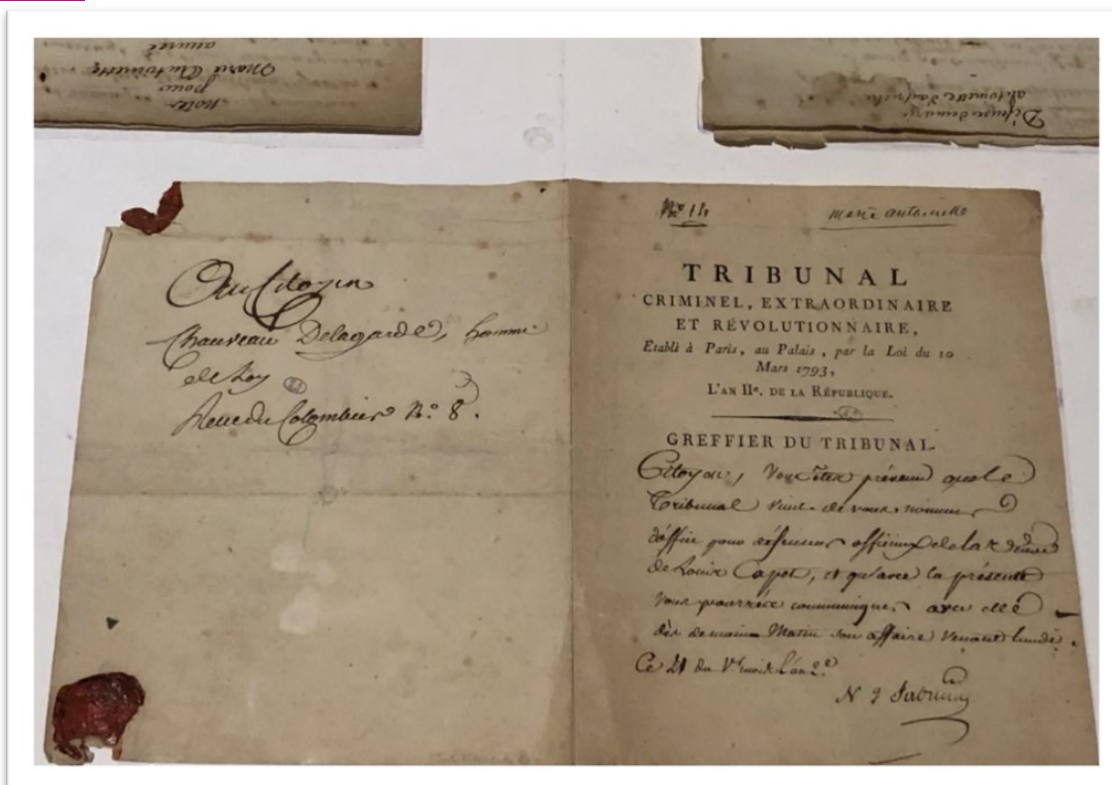 notes
pour
Marie Antoinette
Défense de marie
antoinette d'autriche
Au Citoyen
Chauveau Delagarde, homme
de Loy
Rue du Colombier N.° 8.
marie antoinette
TRIBUNAL
CRIMINEL, EXTRAORDINAIRE
ET RÉVOLUTIONNAIRE,
Etabli à Paris, au Palais, par la Loi du 10
Mars 1793,
L'AN IIe. DE LA RÉPUBLIQUE.
GREFFIER DU TRIBUNAL.
Citoyen, Vous êtes prévenu que le
Tribunal vient de vous nommer
d'office pour défenseur officieux de la
de Louis Capet, et qu'avec la présente
vous pourréz communiquer avec elle
dès demain Matin son affaire venant lundi.
Ce 21 du 1er mois l'an 2e
N